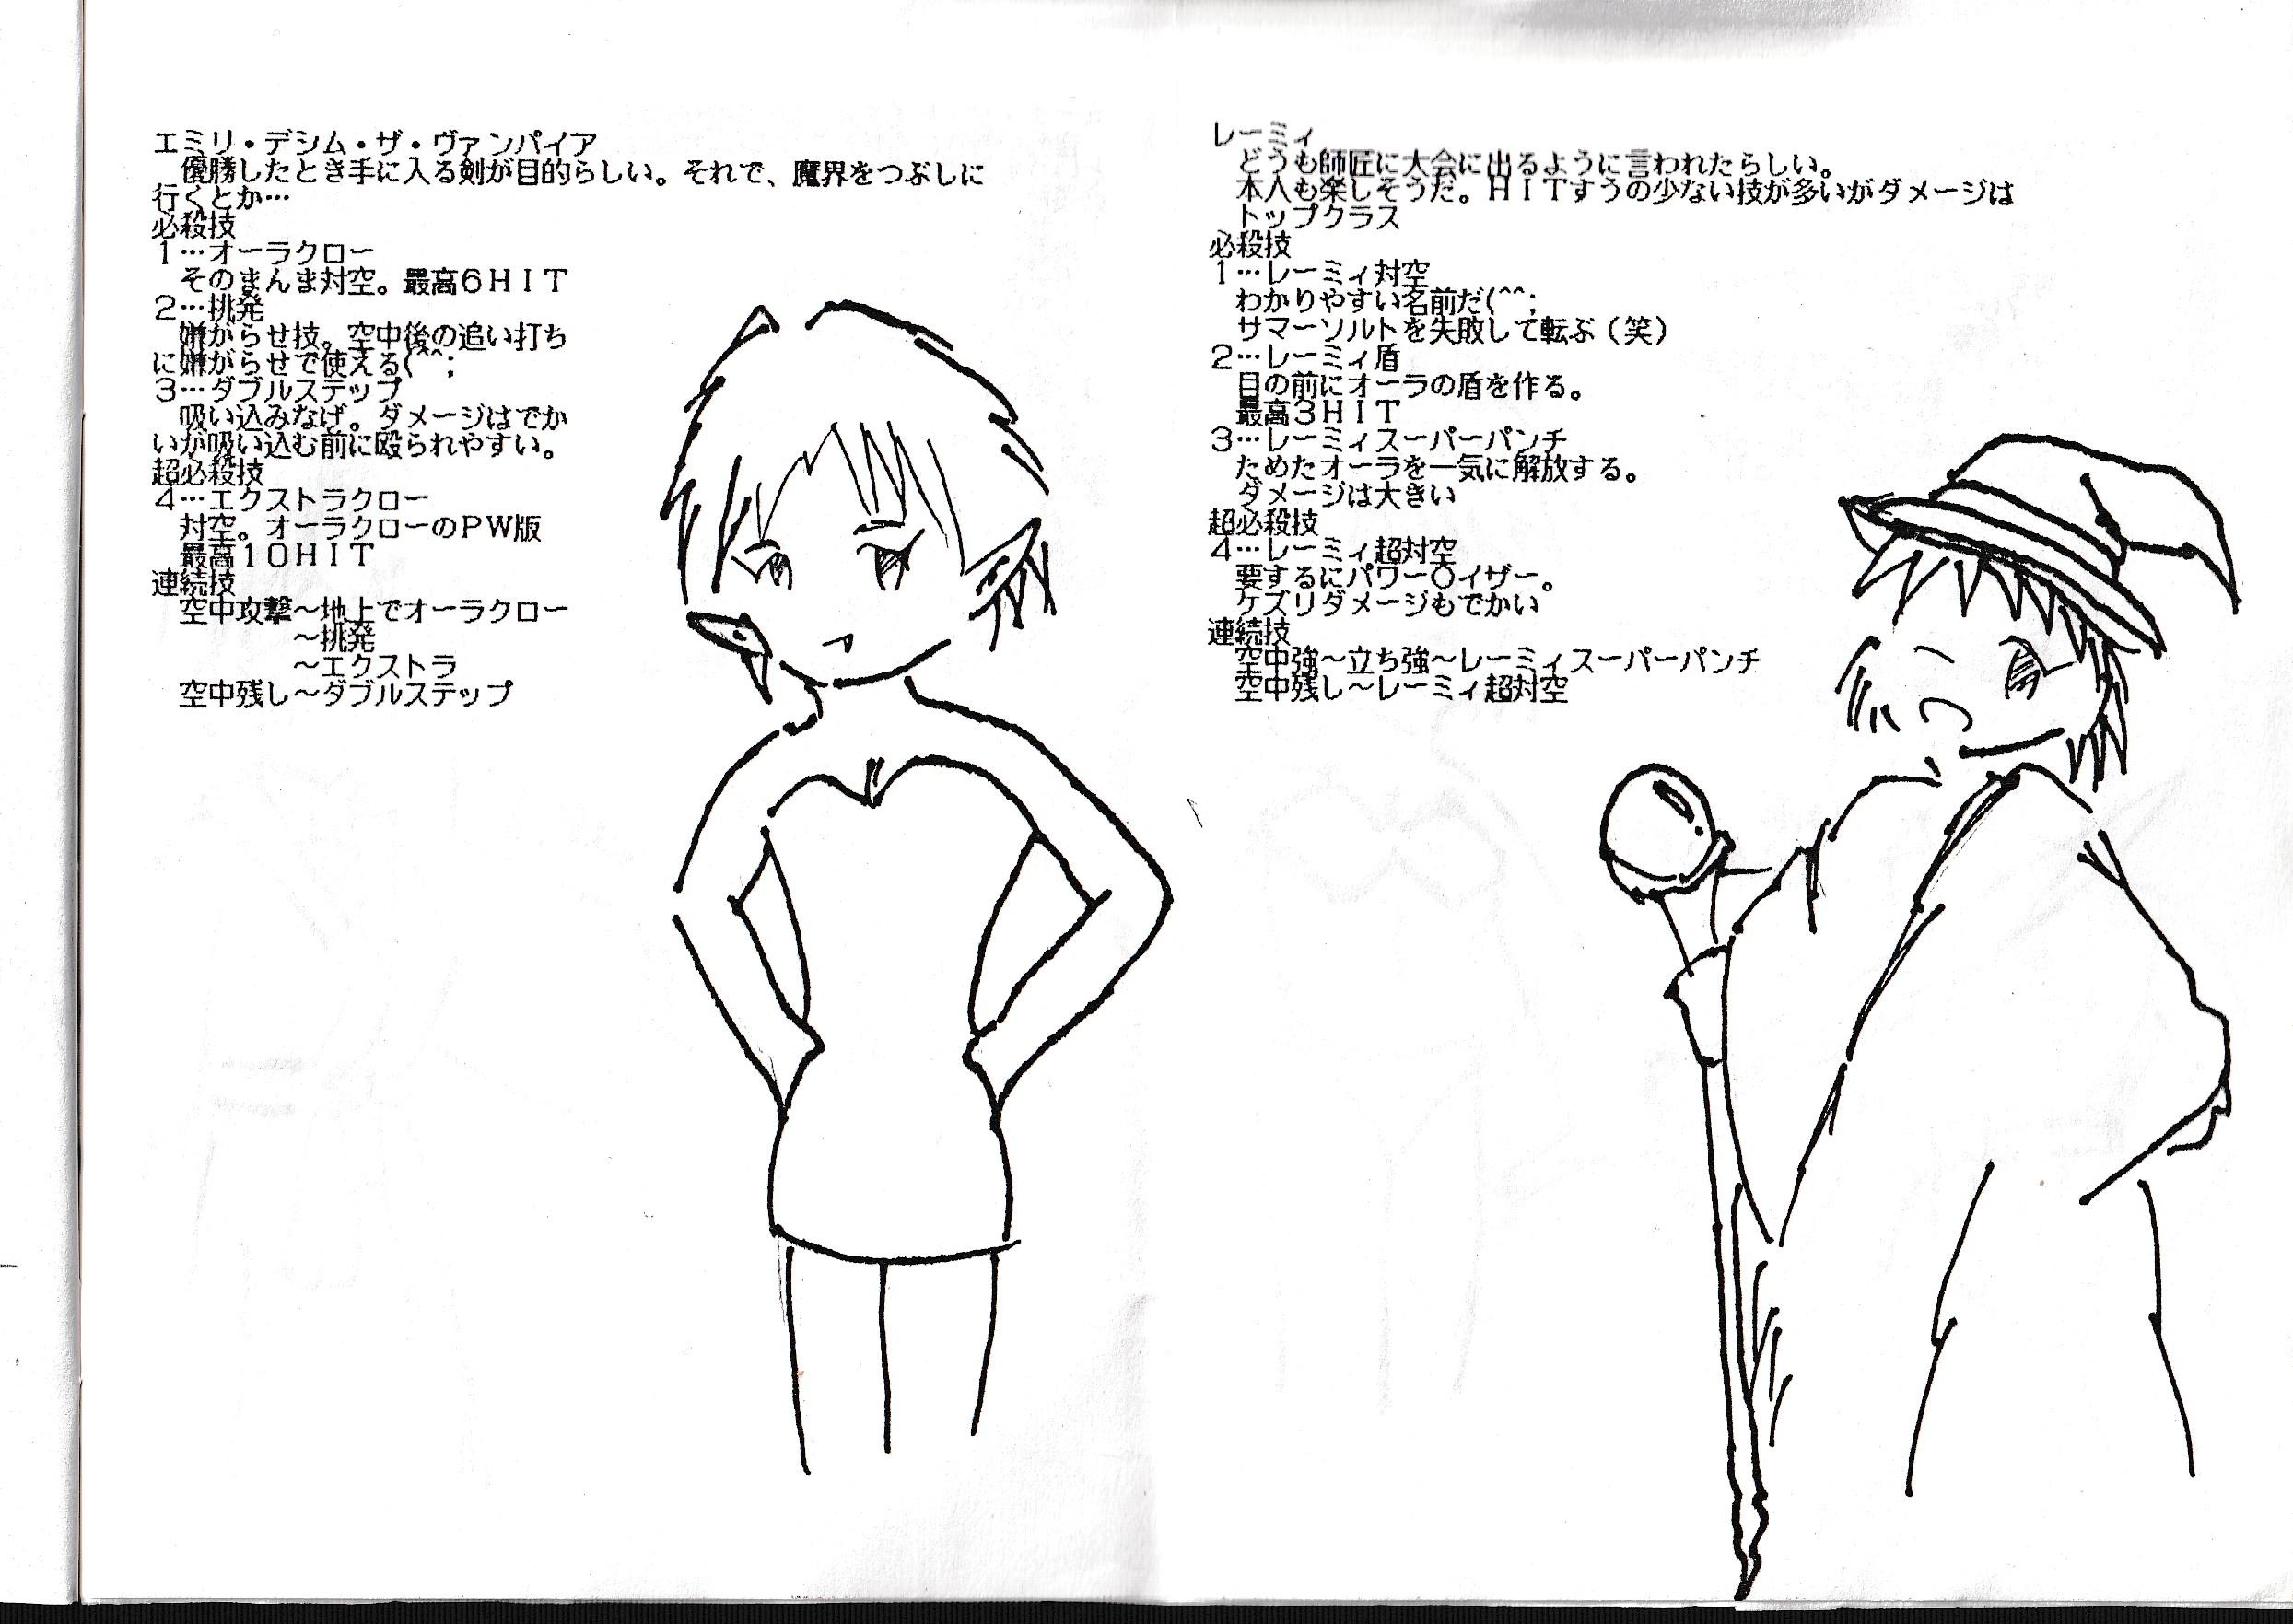 エミリ・デシム・ザ・ヴァンパイア
優勝したとき手に入る剣が目的らしい。それで、魔界をつぶしに
行くとか…
必殺技
1…オーラクロー
そのまんま対空。最高6HIT
2…挑発
嫌がらせ技。空中後の追い打ち
に嫌がらせで使える(^^;
3…ダブルステップ
吸い込みなげ。ダメージはでか
いが吸い込む前に殴られやすい。
超必殺技
4…エクストラクロー
対空。オーラクローのPW版
最高10HIT
連続技
空中攻撃~地上でオーラクロー
~挑発
~エクストラ
空中残し~ダブルステップ
レーミィ
どうも師匠に大会に出るように言われたらしい。
本人も楽しそうだ。HITすうの少ない技が多いがダメージは
トップクラス
必殺技
1…レーミィ対空
わかりやすい名前だ(^^;
サマーソルトを失敗して転ぶ(笑)
2…レーミィ盾
目の前にオーラの盾を作る。
最高3HIT
3…レーミィスーパーパンチ
ためたオーラを一気に解放する。
ダメージは大きい
超必殺技
4…レーミィ超対空
要するにパワー○イザー。
ケズリダメージもでかい
連続技
空中強~立ち強~レーミィスーパーパンチ
空中残し~レーミィ超対空